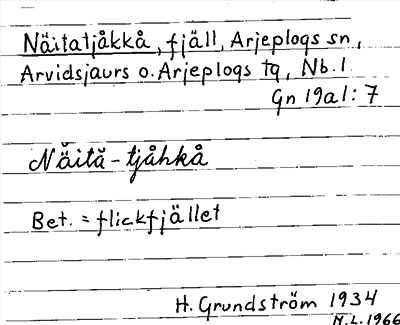 Näitatjåkkå, fjäll, Arjeplogs sn,
Arvidsjaurs o. Arjeplogs tg, Nb. l.
Gn 19a1:7
Näită-tjåhkå
Bet. = flickfjället
H. Grundström 1934
M.L. 1966